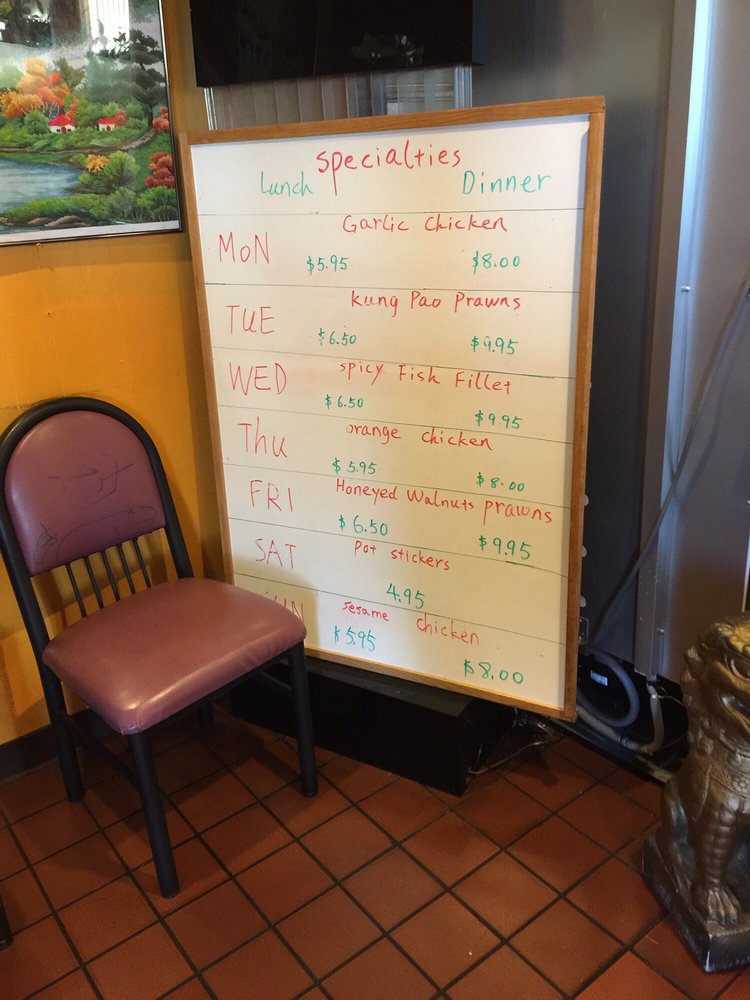 Specialties
Lunch Dinner
Garlic Chicken
MON $5.95 $8.00
Kung Pao Prawns
TUE $6.50 $9.95
Spicy Fish Fillet
WED $6.50 $9.95
Orange Chicken
Thu $5.95 $8.00
Honeyed Walnuts Prawns
FRI $6.50 $9.95
Pot Stickers
SAT 4.95
Sesame Chicken
SUN $5.95 $8.00